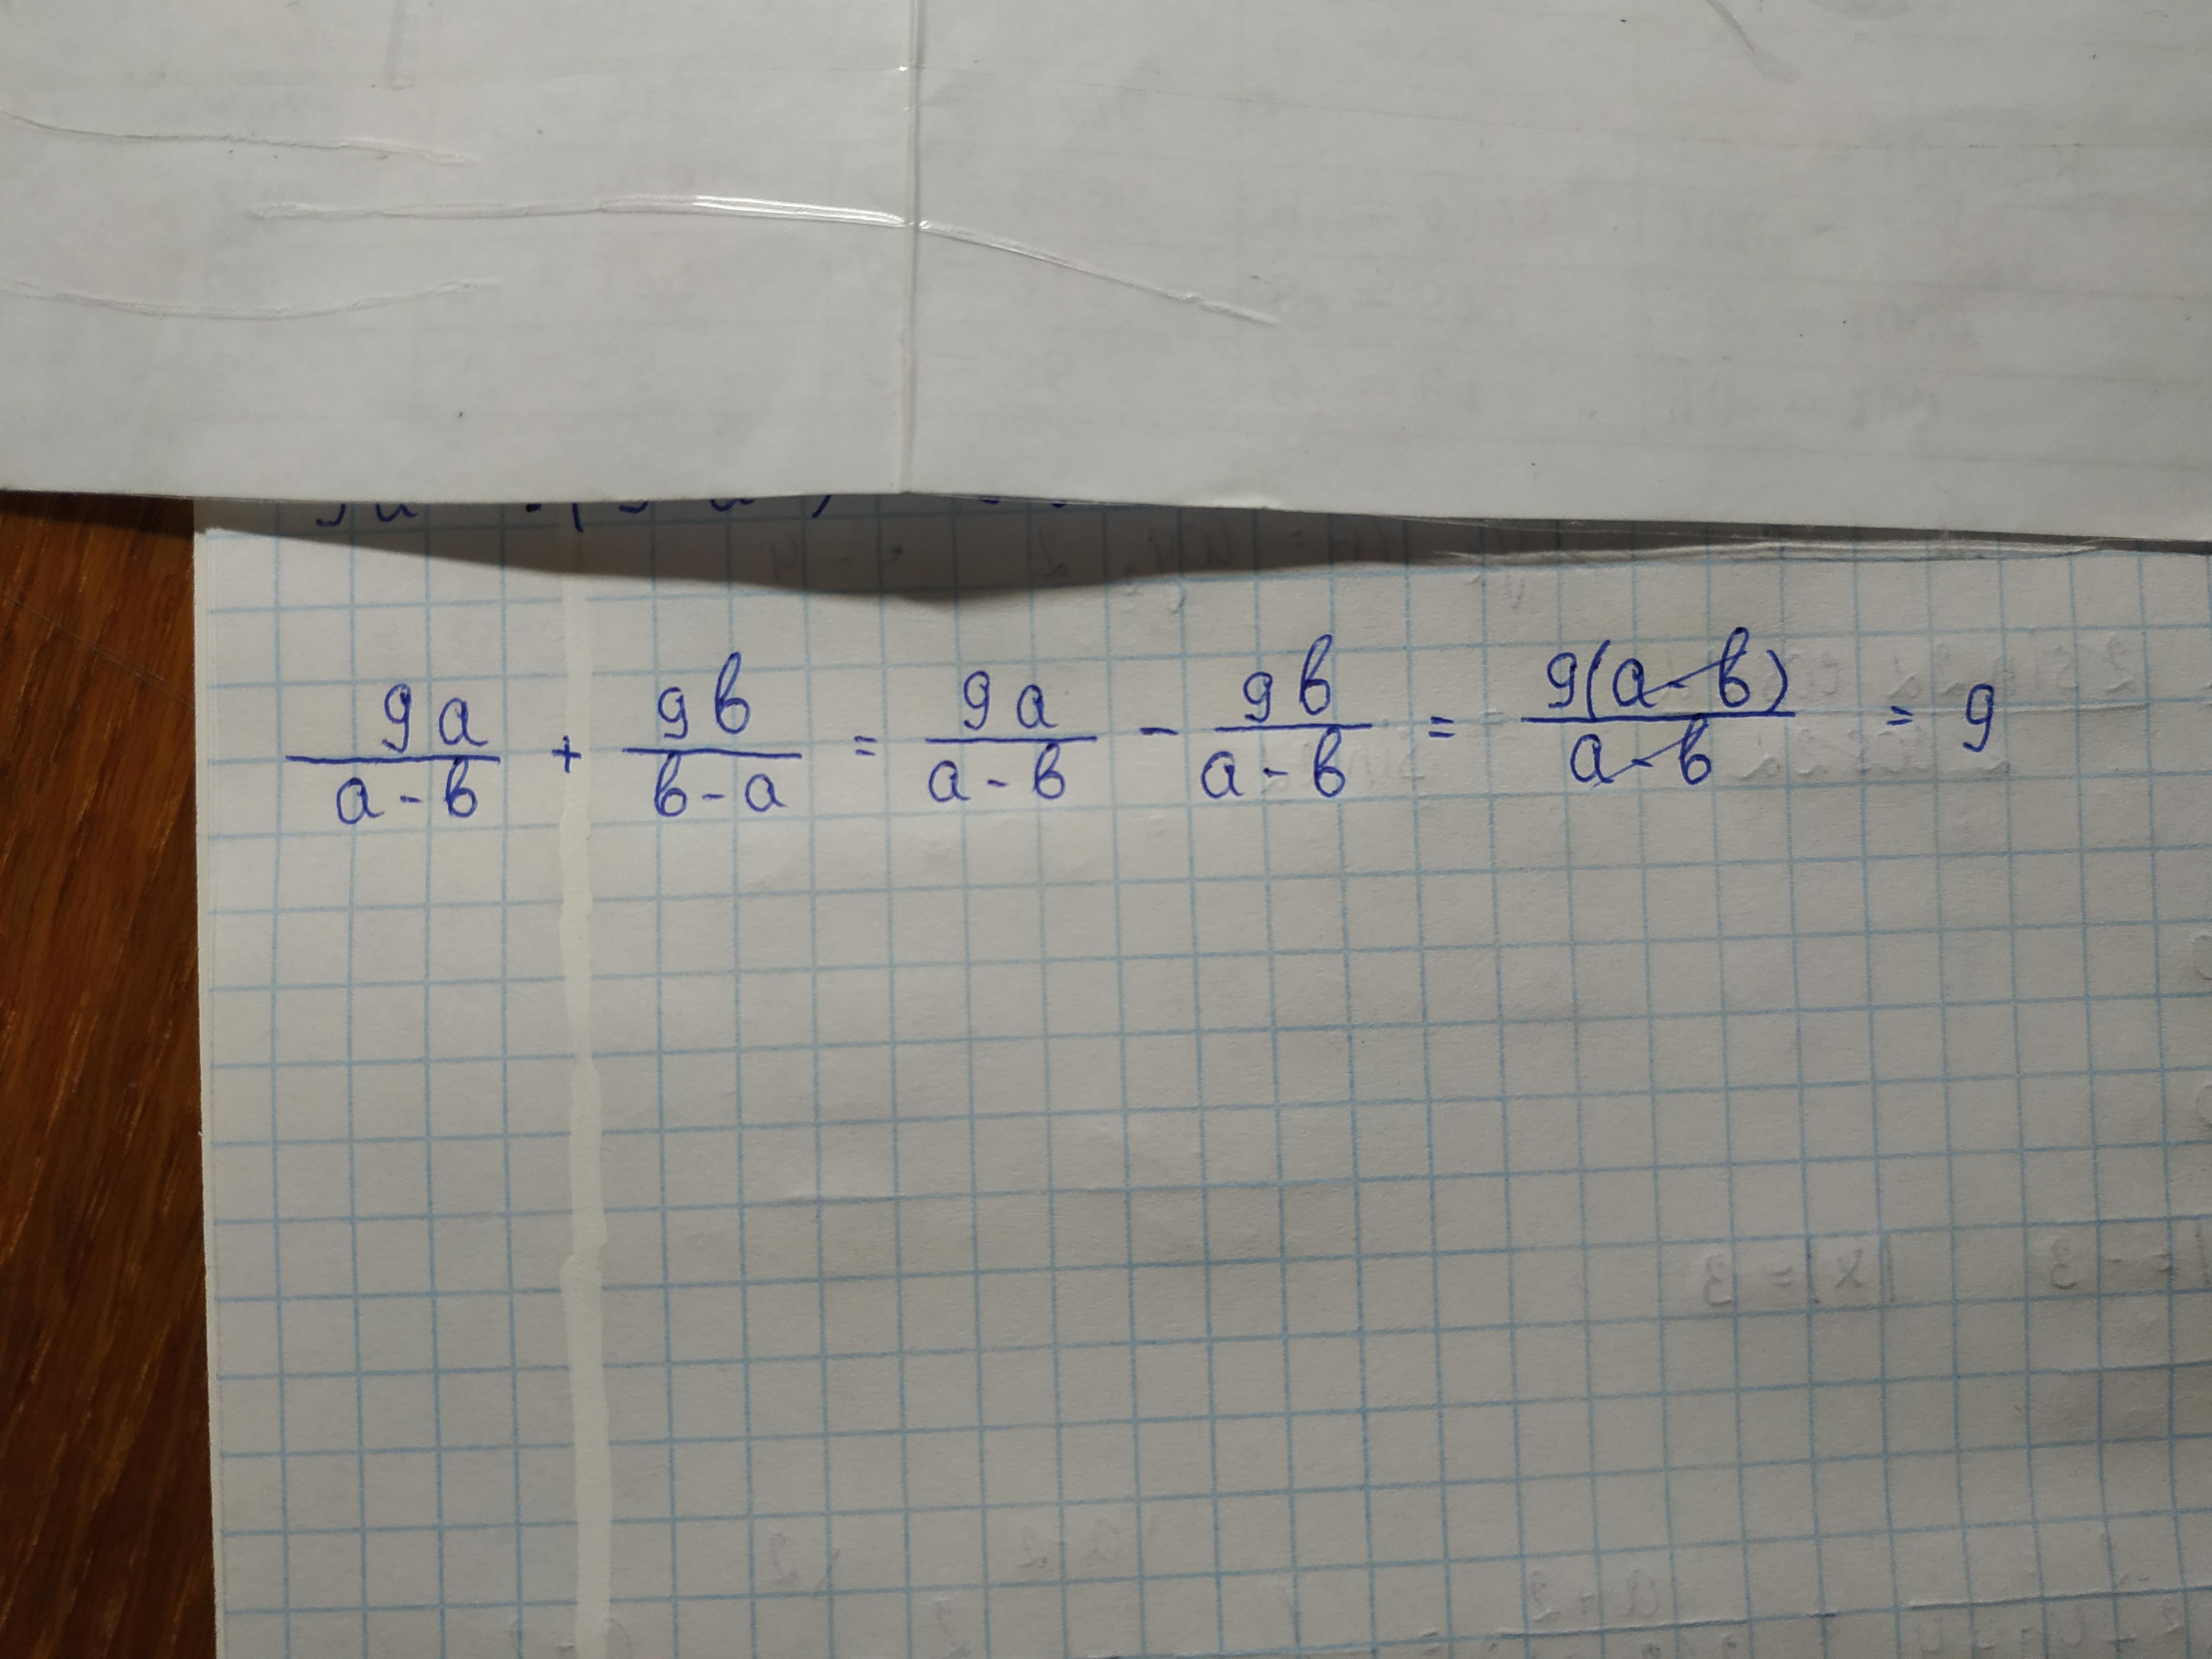 9a/(a-b) + 9b/(b-a) = 9a/(a-b) - 9b/(a-b) = 9(a-b)/(a-b) = 9
|x|=3